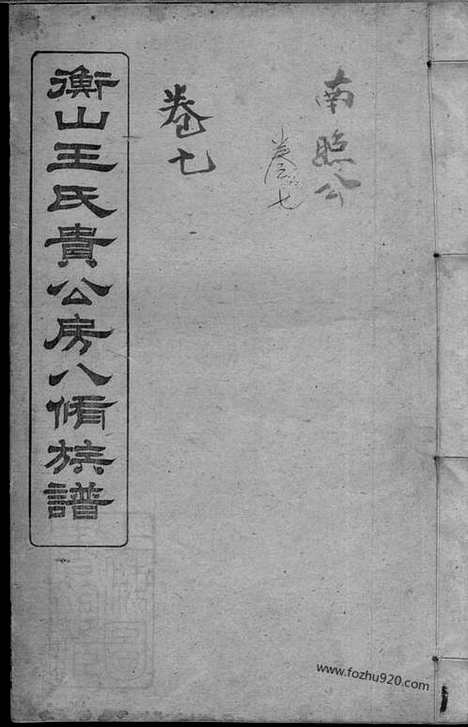 南熙公
卷七
卷七
衡山王氏貴公房八脩族譜
www.fozhu920.com